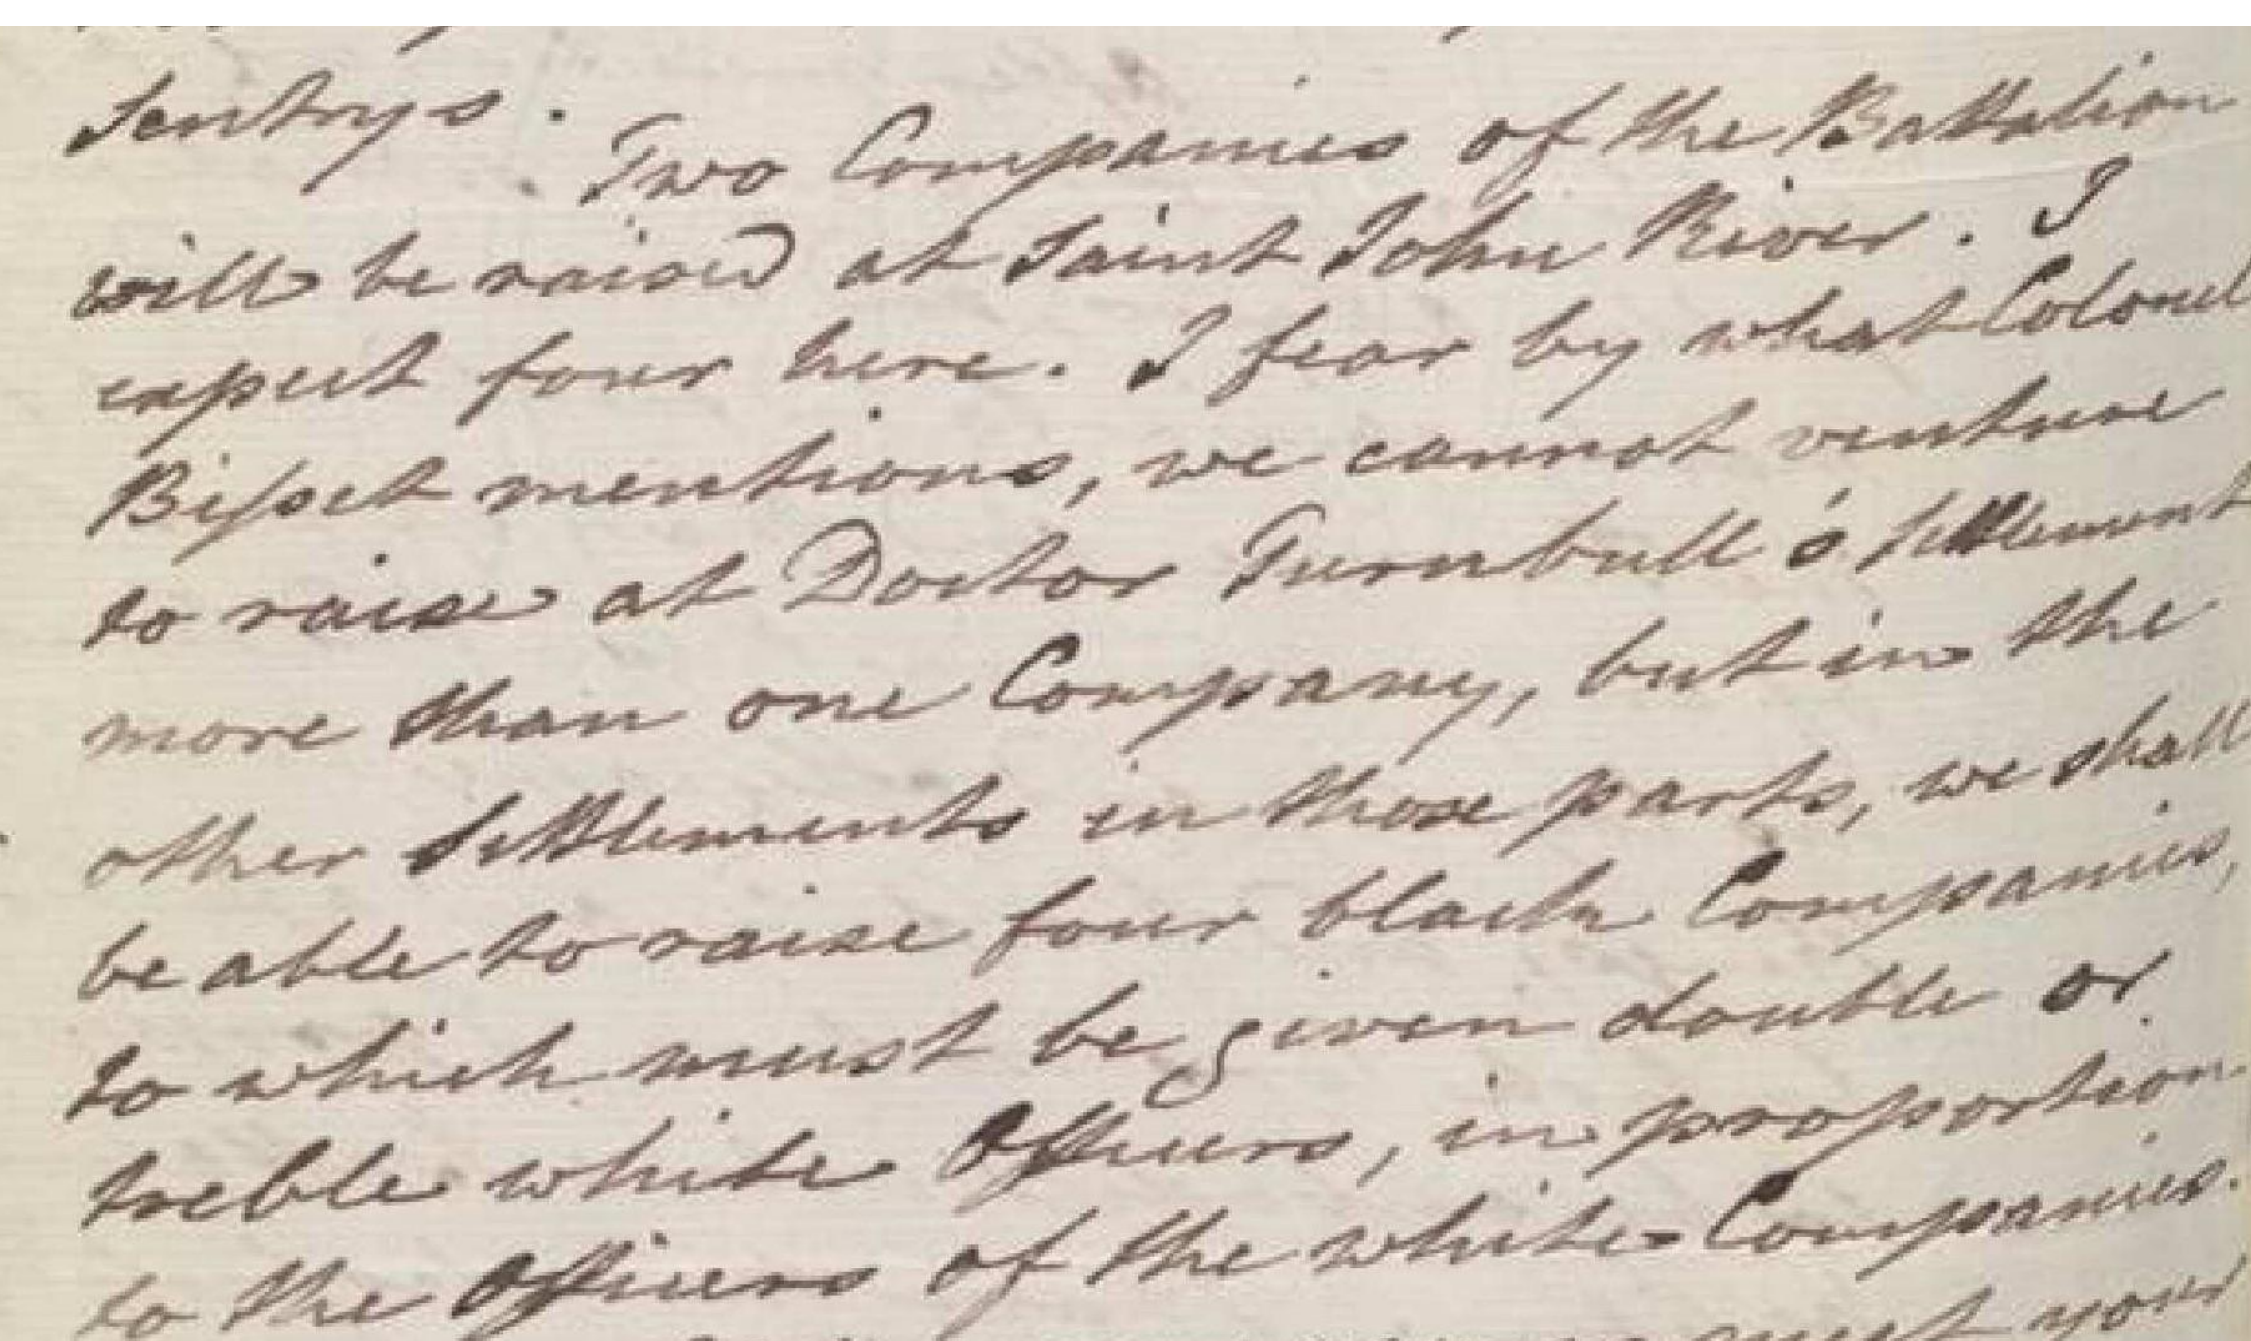 Sentrys.
Two Companies of the Battalion
will be raised at Saint John River. I
expect four here. I fear by what Colonel
Bisset mentions, we cannot venture
to raise at Doctor Turnbull's settlement
more than one Company, but in the
other settlements in those parts, we shall
be able to raise four black Companies,
to which must be given double or
treble white Officers, in proportion
to the Officers of the white Companies.
your